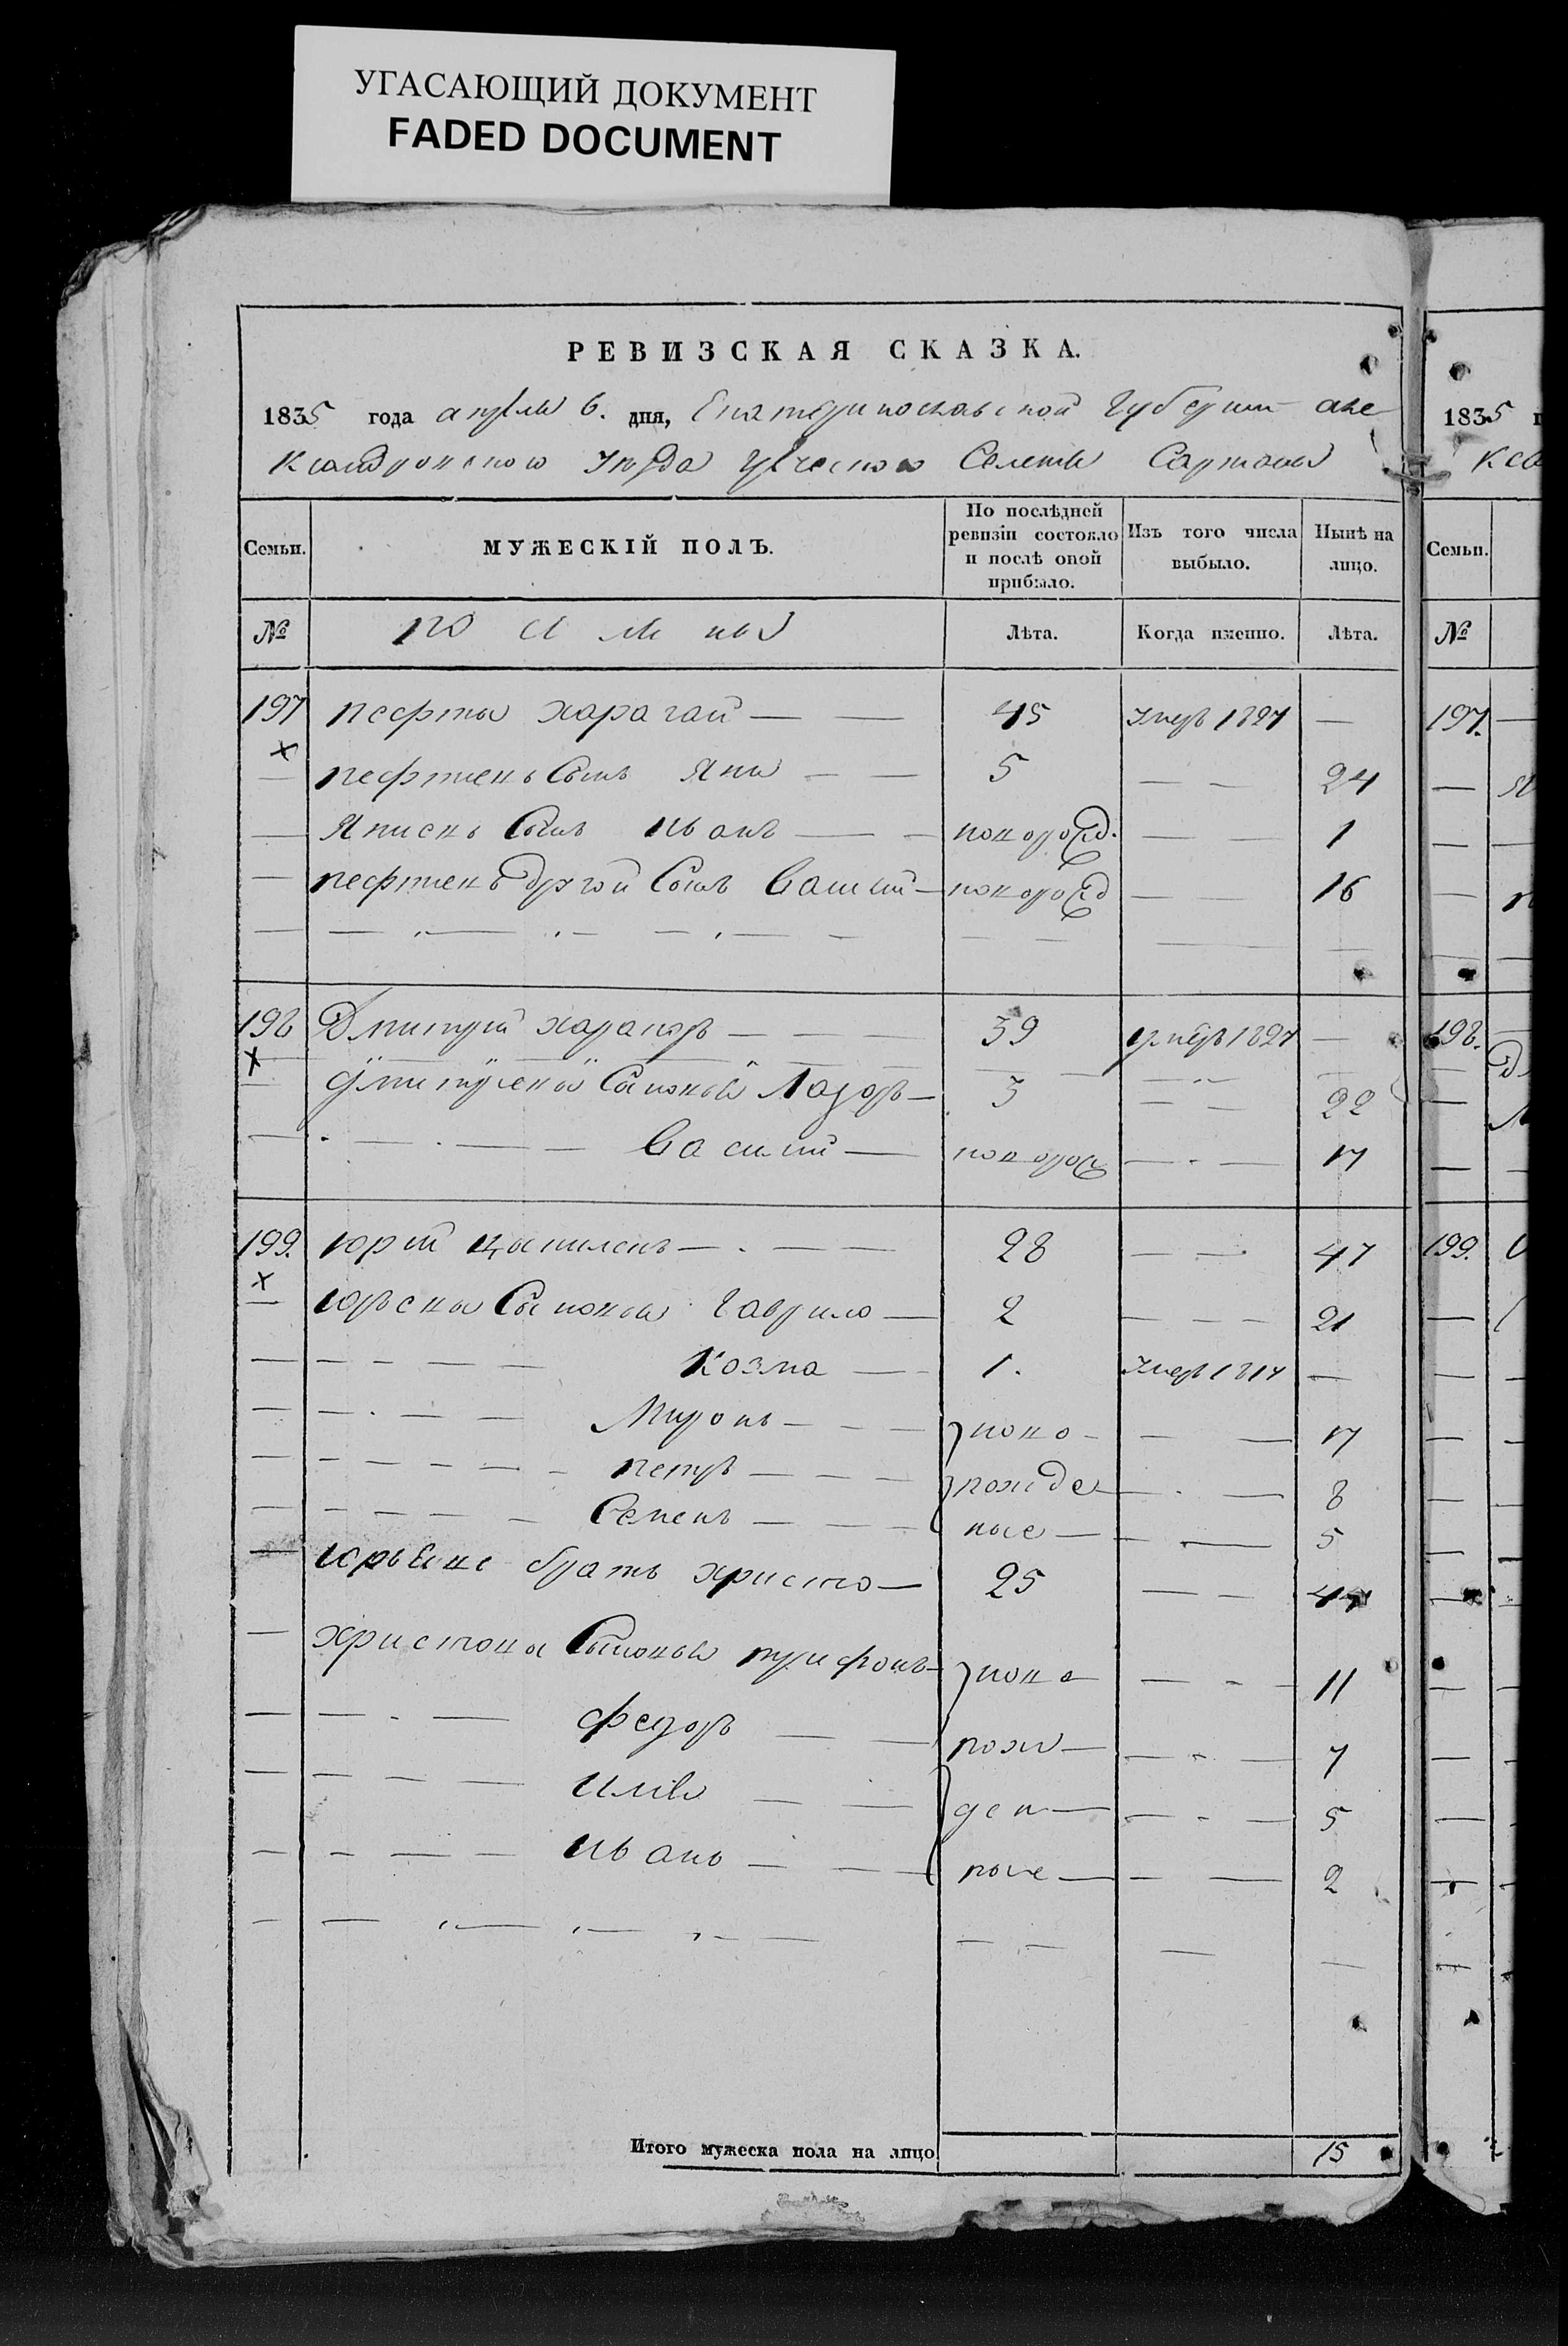 УГАСАЮЩИЙ ДОКУМЕНТ
FADED DOCUMENT
РЕВИЗСКАЯ СКАЗКА.
1835 года апреля 6. дня, Екатеринославской Губернии Але
ксандровского Уезда Греческого Селения Сартаны
Семьи. МУЖЕСКІЙ ПОЛЪ. По послѣдней ревизіи состояло и послѣ оной прибыло. Изъ того числа выбыло. Нынѣ на лицо.
№ Лѣта. Когда именно. Лѣта.
197 Нефты Харагай 45 Умеръ 1827 —
х Нефтенъ Сынъ Яни 5 — 24
Янисенъ Сынъ Иванъ новорожд. — 1
Нефтенъ другой Сынъ Василий новорожд — 16
198 Дмитрий 39 умеръ 1827 —
х Сыновья Лазарь 3 — 22
Василий новорож — 17
199. Юрий 28 — 47
х Сыновья Гаврило 2 — 21
Козма 1. Умеръ 1817 —
Миронъ ново 17
Петръ рожде 8
Семенъ ные 5
Юрьевъ братъ Христо 25 — 44
Христоны Сыновья Трифонъ ново 11
Федоръ рож 7
Илья ден 5
Иванъ ные 2
Итого мужеска пола на лицо 15
1835
Ксан
Семьи.
№
197.
198.
199.